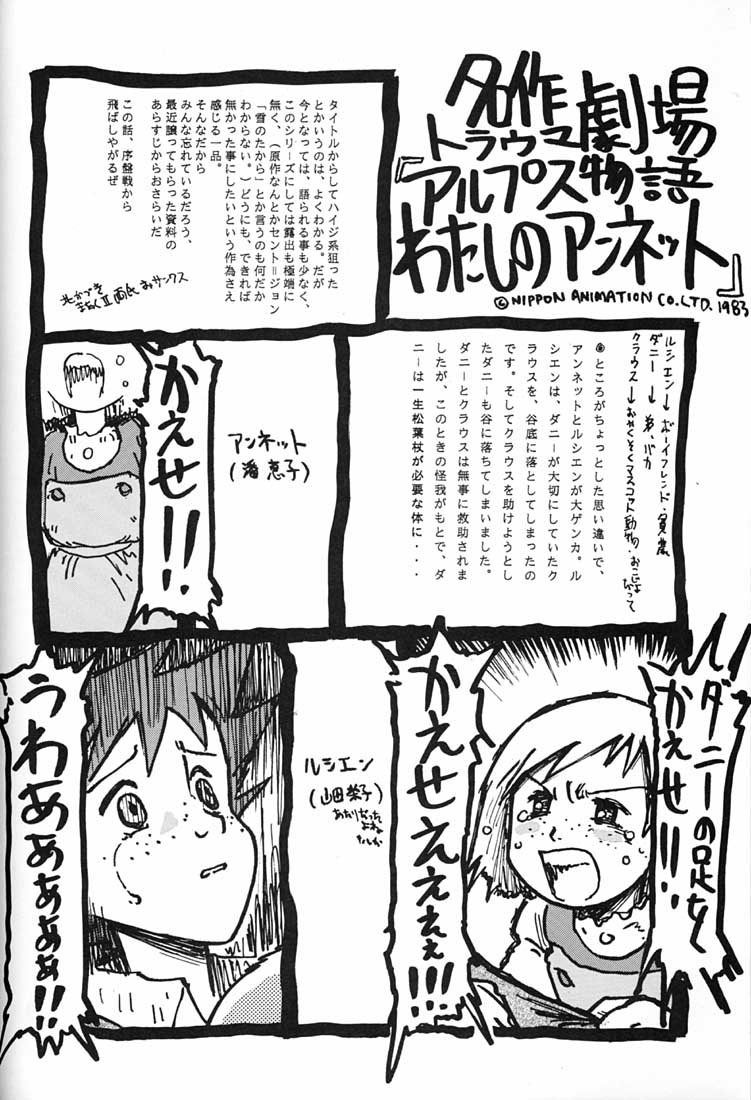 名作
トラウマ劇場
『アルプス物語
わたしのアンネット』
© NIPPON ANIMATION CO.LTD. 1983
タイトルからしてハイジ系狙った
とかいうのは、よくわかる。だが
今となっては、語られる事も少なく、
このシリーズにしては露出も極端に
無く、（原作なんとかセント＝ジョン
「雪のたから」とか言うのも何だか
わからない。）どうにも、できれば
無かった事にしたいという作為さえ
感じる一品。
そんなだから
みんな忘れているだろう、
最近譲ってもらった資料の
あらすじからおさらいだ
この話、序盤戦から
飛ばしやがるぜ
ルシエン→ボーイフレンド・貧農
ダニー→弟、バカ
クラウス→おやくそくマスコット動物・おこじょ
だって
●ところがちょっとした思い違いで、
アンネットとルシエンが大ゲンカ。ル
シエンは、ダニーが大切にしていたク
ラウスを、谷底に落としてしまったの
です。そしてクラウスを助けようとし
たダニーも谷に落ちてしまいました。
ダニーとクラウスは無事に救助されま
したが、このときの怪我がもとで、ダ
ニーは一生松葉杖が必要な体に・・・
アンネット
（潘 恵子）
かえせ!!
ダニーの足を
かえせ!!
かえせえええぇ!!!
ルシエン
（山田栄子）
うわあぁぁぁぁ!!